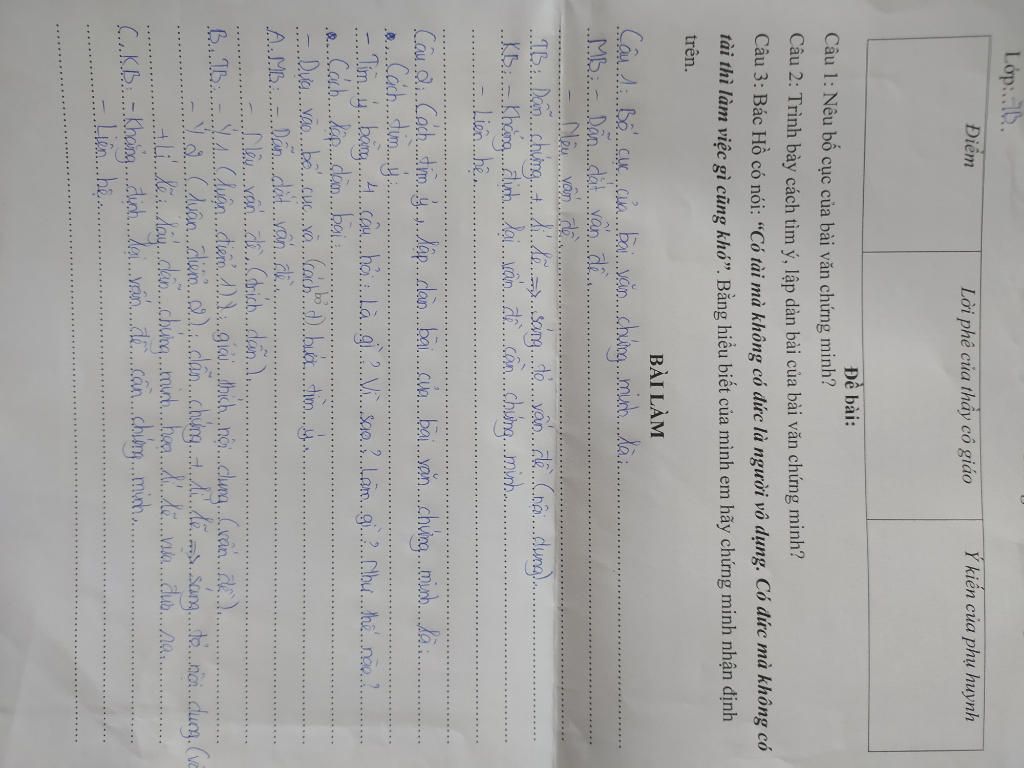 Lớp: 7B.
Điểm
Lời phê của thầy cô giáo
Ý kiến của phụ huynh
Đề bài:
Câu 1: Nêu bố cục của bài văn chứng minh?
Câu 2: Trình bày cách tìm ý, lập dàn bài của bài văn chứng minh?
Câu 3: Bác Hồ có nói: “Có tài mà không có đức là người vô dụng. Có đức mà không có
tài thì làm việc gì cũng khó”. Bằng hiểu biết của mình em hãy chứng minh nhận định
trên.
BÀI LÀM
Câu 1: Bố cục của bài văn chứng minh là:
MB: - Dẫn dắt vấn đề.
- Nêu vấn đề
TB: Dẫn chứng + lí lẽ => sáng tỏ vấn đề (nội dung).
KB: - Khẳng định lại vấn đề cần chứng minh.
- Liên hệ.
Câu 2: Cách tìm ý, lập dàn bài của bài văn chứng minh là:
Cách tìm ý:
- Tìm ý bằng 4 câu hỏi: Là gì? Vì sao? Làm gì? Như thế nào?
Cách lập dàn bài:
- Dựa vào bố cục và bước tìm ý.
A. MB: - Dẫn dắt vấn đề.
- Nêu vấn đề (trích dẫn).
B. TB: - Ý 1 (luận điểm 1): giải thích nội dung (vấn đề).
- Ý 2 (luận điểm 2): dẫn chứng + lí lẽ => sáng tỏ nội dung
+ Lí lẽ: lấy dẫn chứng minh họa lí lẽ vừa đưa ra.
C. KB: - Khẳng định lại vấn đề cần chứng minh.
- Liên hệ.